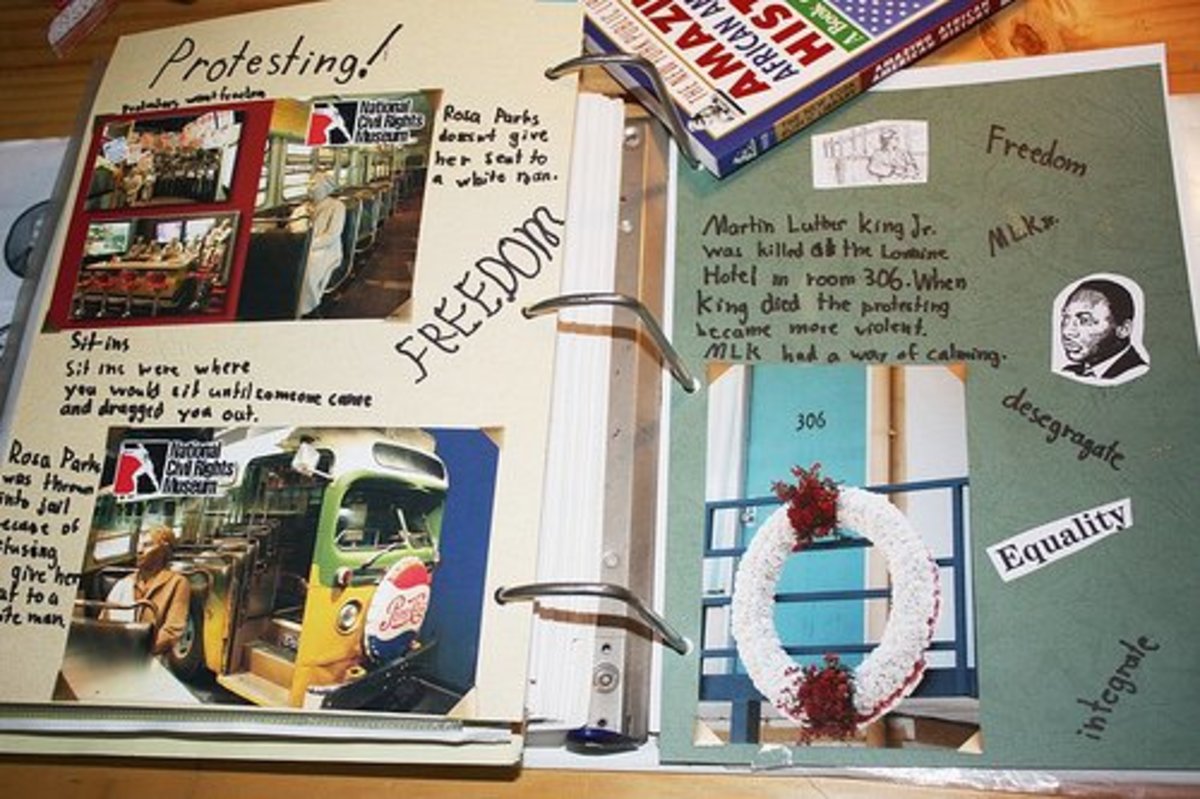 Protesting!
Protesters want freedom
National
Civil Rights
Museum
Rosa Parks
doesnt give
her seat to
a white man.
FREEDOM
Sit-ins
Sit ins were where
you would sit until someone came
and dragged you out.
National
Civil Rights
Museum
Rosa Parks
was thrown
into jail
fusing
give her
at to a
ite man.
Pepsi-Cola
THE NEW YORK PUBLIC
AMAZIN
AFRICAN AM
HIST
A Book
AMAZING AFRICAN
AMERICAN HISTORY
Freedom
Martin Luther King Jr.
was killed at the Lorraine
Hotel in room 306. When
King died the protesting
became more violent.
MLK had a way of calming.
MLK Jr.
306
desegragate
Equality
integrate